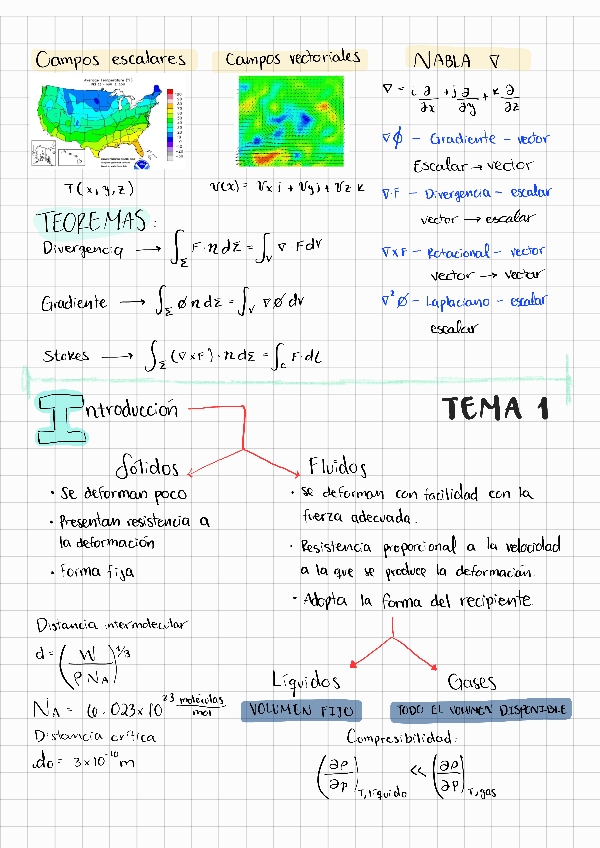 Campos escalares
Campos vectoriales
NABLA ∇
Average Temperature (°F)
T(x,y,z)
v(x) = vx i + vy j + vz k
∇ = i ∂/∂x + j ∂/∂y + k ∂/∂z
∇ϕ - Gradiente - vector
Escalar → vector
∇·F - Divergencia - escalar
vector → escalar
∇×F - Rotacional - vector
vector → vector
∇²ϕ - Laplaciano - escalar
escalar
TEOREMAS:
Divergencia → ∫Σ F·n dΣ = ∫V ∇ F dV
Gradiente → ∫Σ ϕ n dΣ = ∫V ∇ϕ dV
Stokes → ∫Σ (∇×F)·n dΣ = ∫c F·dL
TEMA 1
Introducción
Sólidos
· Se deforman poco
· Presentan resistencia a
la deformación
· Forma fija
Fluidos
· se deforman con facilidad con la
fuerza adecuada.
· Resistencia proporcional a la velocidad
a la que se produce la deformación.
· Adopta la forma del recipiente
Distancia intermolecular
d = (W/ρNA)^1/3
NA = 6.023×10^23 moléculas/mol
Distancia crítica
do = 3×10^-10 m
Líquidos
VOLUMEN FIJO
Gases
TODO EL VOLUMEN DISPONIBLE
Compresibilidad:
(∂ρ/∂p)T,líquido << (∂ρ/∂p)T,gas